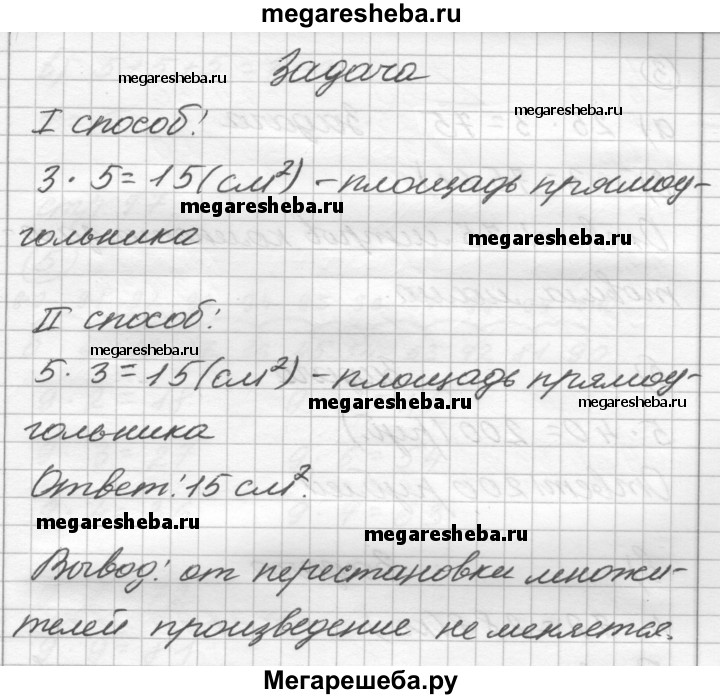 megaresheba.ru
Задача
megaresheba.ru
megaresheba.ru
I способ:
3 · 5 = 15 (см²) – площадь прямоу-
megaresheba.ru
гольника
megaresheba.ru
II способ:
megaresheba.ru
5 · 3 = 15 (см²) – площадь прямоу-
megaresheba.ru
megaresheba.ru
гольника
Ответ: 15 см².
megaresheba.ru
megaresheba.ru
Вывод: от перестановки множи-
телей произведение не меняется.
Мегарешеба.ру